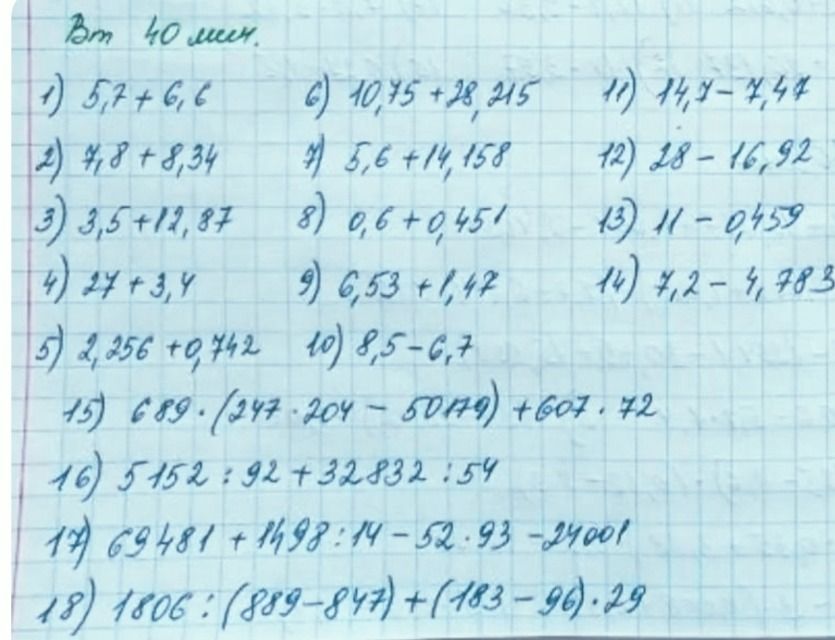 Вт 40 мин.
1) 5,7 + 6,6 6) 10,75 + 28,215 11) 14,7 - 7,47
2) 7,8 + 8,34 7) 5,6 + 14,158 12) 28 - 16,92
3) 3,5 + 12,87 8) 0,6 + 0,451 13) 11 - 0,459
4) 27 + 3,4 9) 6,53 + 1,47 14) 7,2 - 4,783
5) 2,256 + 0,742 10) 8,5 - 6,7
15) 689 · (247 · 204 - 50179) + 607 · 72
16) 5152 : 92 + 32832 : 54
17) 69481 + 1498 : 14 - 52 · 93 - 24001
18) 1806 : (889 - 847) + (183 - 96) · 29